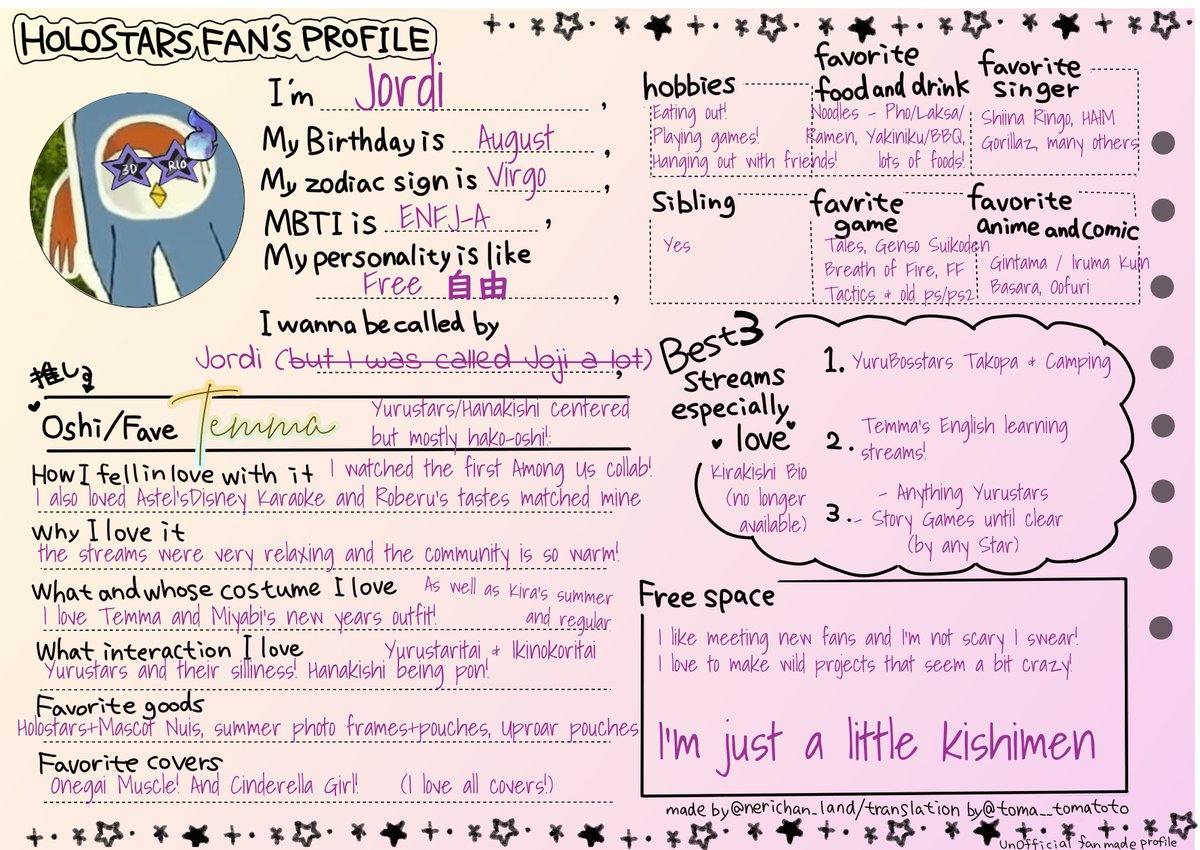 HOLOSTARS FAN'S PROFILE
3D RIO
I'm Jordi,
My Birthday is August,
My zodiac sign is Virgo,
MBTI is ENFJ-A,
My personality is like
Free 自由,
I wanna be called by
Jordi (but I was called Joji a lot),
推し
Oshi/Fave Temma
Yurustars/Hanakishi centered
but mostly hako-oshi!:
How I fell in love with it I watched the first Among Us collab!
I also loved Astel'sDisney Karaoke and Roberu's tastes matched mine
Why I love it
the streams were very relaxing and the community is so warm!
What and whose costume I love As well as Kira's summer
I love Temma and Miyabi's new years outfit! and regular
What interaction I love Yurustaritai & Ikinokoritai
Yurustars and their silliness! Hanakishi being pon!
Favorite goods
Holostars+Mascot Nuis, summer photo frames+pouches, Uproar pouches
Favorite covers
Onegai Muscle! And Cinderella Girl! (I love all covers!)
hobbies
Eating out!
Playing games!
Hanging out with friends!
favorite
food and drink
Noodles - Pho/Laksa/
Ramen, Yakiniku/BBQ,
lots of foods!
favorite
singer
Shiina Ringo, HAIM
Gorillaz, many others
Sibling
Yes
favrite
game
Tales, Genso Suikoden
Breath of Fire, FF
Tactics & old ps/ps2
favorite
anime and comic
Gintama / Iruma Kun
Basara, Oofuri
Best3
streams
especially
love
Kirakishi Bio
(no longer
available)
1. YuruBosstars Takopa & Camping
2. Temma's English learning
streams!
3. - Anything Yurustars
- Story Games until clear
(by any Star)
Free space
I like meeting new fans and I'm not scary I swear!
I love to make wild projects that seem a bit crazy!
I'm just a little kishimen
made by@nerichan_land/translation by@toma__tomatoto
unofficial fanmade profile